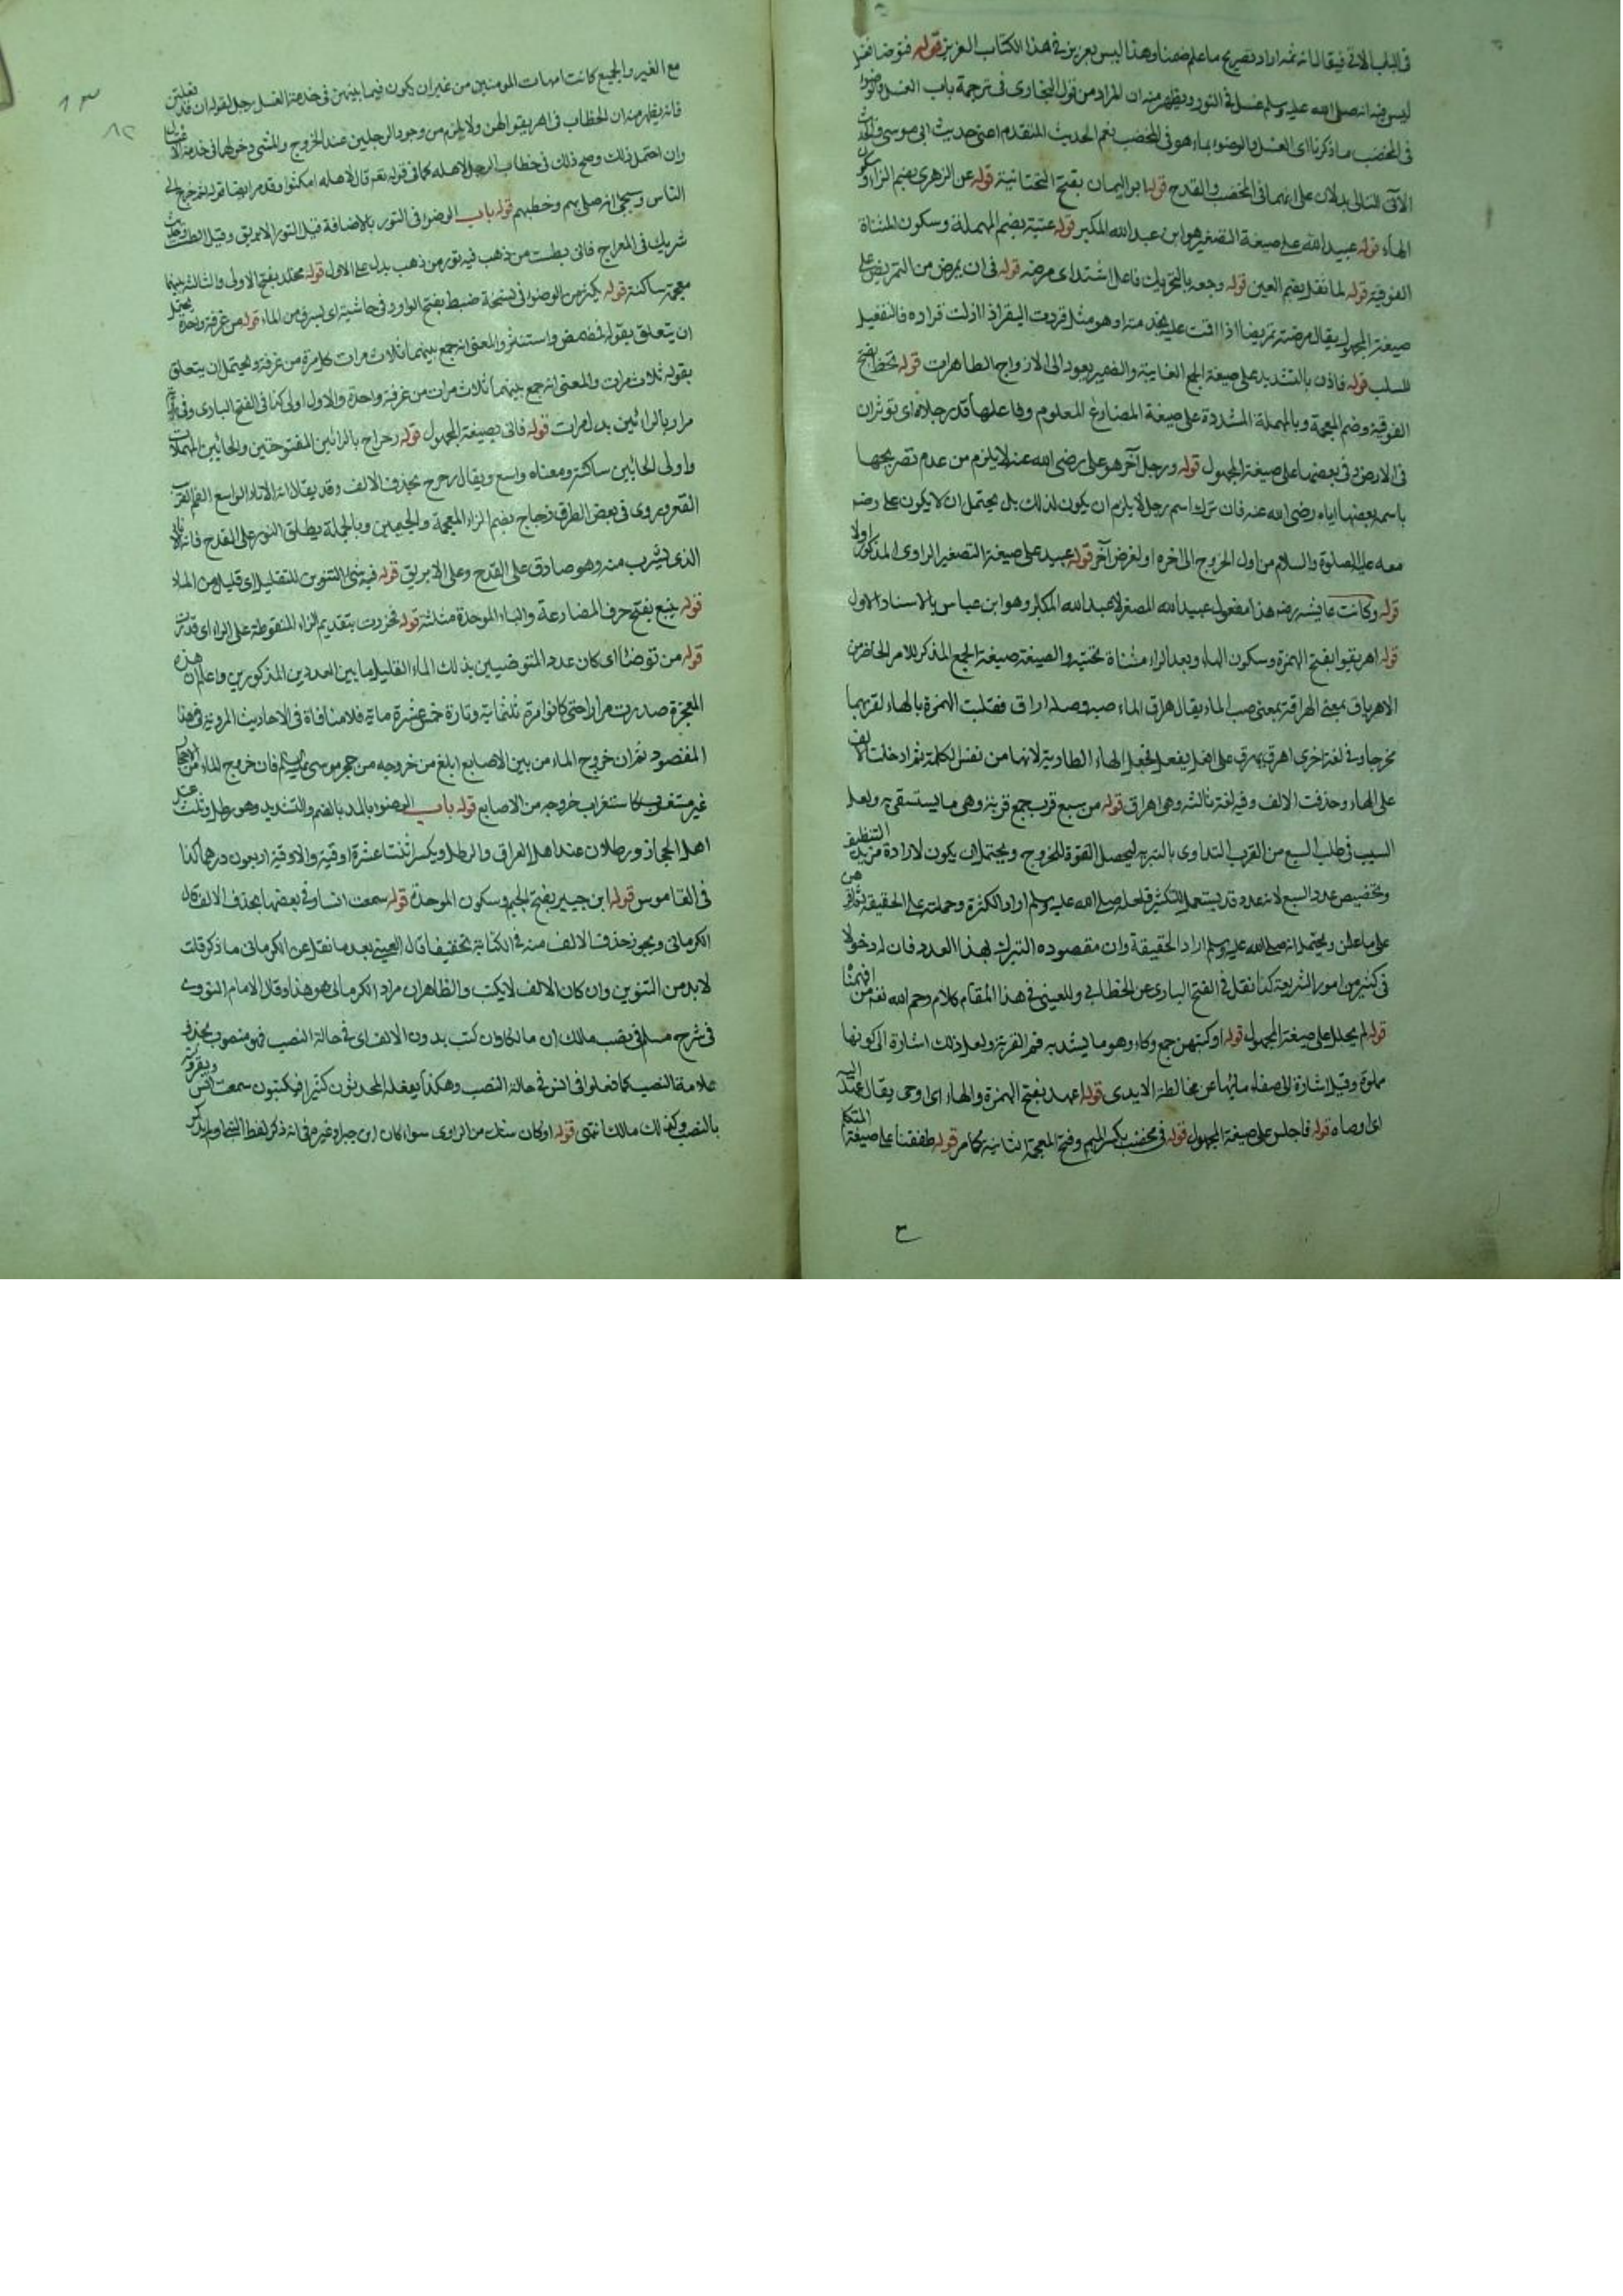 في الباب الآتي فيقال انه ثمه اراد تصريح ما علم ضمنا وهذا ليس بعزيز في هذا الكتاب العزيز قوله فتوضأ فغسل
ليس فيه انه صلى الله عليه وسلم غسل في التور ويظهر منه ان المراد من قول البخاري في ترجمة باب الغسل والوضوء
في المخضب ما ذكرنا اي الغسل والوضوء بماء هو في المخضب نعم الحديث المتقدم اعني حديث ابي موسى والحديث
الآتي التالي يدلان على انهما في المخضب والقدح قوله ابو اليمان بفتح التحتانية قوله عن الزهري بضم الزاء وسكون
الهاء قوله عبيد الله على صيغة التصغير هو ابن عبد الله المكبر قوله عتبة بضم المهملة وسكون المثناة
الفوقية قوله لما ثقل بضم العين قوله وجعه بالتحريك فاعل اشتد اي مرضه قوله في ان يمرض من التمريض على
صيغة المجهول يقال مرضته تمريضا اذا اقمت عليه بخدمته او هو مثل قردت البقر اذا ازلت قراده فالتفعيل
للسلب قوله فاذن بالتشديد على صيغة الجمع الغايبة والضمير يعود الى الازواج الطاهرات قوله تخط بفتح
الفوقية وضم المعجمة وبالمهملة المشددة على صيغة المضارع المعلوم وفاعلها قدر رجلاه اي توثران
في الارض وفي بعضها على صيغة المجهول قوله ورجل آخر هو علي رضي الله عنه لا يلزم من عدم تصريحها
باسمه بغضها اياه رضي الله عنه فان ترك اسم رجل لا يلزم ان يكون لذلك بل يحتمل ان لا يكون علي رضه
معه عليه الصلوة والسلام من اول الخروج الى اخره او لغرض آخر قوله عبيد على صيغة التصغير الراوي المذكور اولا
قوله وكانت عايشه رضه هذا مفعول عبيد الله المصغر لا عبد الله المكبر وهو ابن عباس بالاسناد الاول
قوله اهريقوا بفتح الهمزة وسكون الهاء وبعد الراء مثناة تحتية والصيغة صيغة الجمع المذكر للامر الحاضر من
الاهرياق بمعنى الهراقة بمعنى صب الماء يقال هراق الماء صبه واصله اراق فقلبت الهمزة بالهاء لقربهما
مخرجا وفي لغة اخرى اهرق يهرق على افعل يفعل فجعل الهاء الطارية لانها من نفس الكلمة ثم ادخلت الالف
على الهاء وحذفت الالف وفيه لغة ثالثة وهي اهراق قوله من سبع قرب جمع قربة وهي ما يستسقى به ولعل
السبب في طلب السبع من القرب التداوي بالتبريد ليحصل القوة للخروج ويحتمل ان يكون لارادة مزيد التنظيف
وتخصيص عدد السبع لانه عدد قد يستعمل للتكثير فلعله صلى الله عليه وسلم اراد الكثرة وحملته على الحقيقة
على ما علمن ويحتمل انه صلى الله عليه وسلم اراد الحقيقة وان مقصوده التبرك بهذا العدد فان له دخولا
في كثير من امور الشريعة كذا نقل في الفتح الباري عن الخطابي وللعيني في هذا المقام كلام رحم الله
قوله لم يحلل على صيغة المجهول قوله اوكيتهن جمع وكاء وهو ما يشد به فم القربة ولعل ذلك اشارة الى كونها
مملوة وقيل اشارة الى صفاء مائها عن مخالطة الايدي قوله اعهد بفتح الهمزة والهاء اي اوصى يقال عهد اليه
اي اوصاه قوله فاجلس على صيغة المجهول قوله في مخضب بكسر الميم وفتح المعجمة الثانية كما مر قوله طفقنا على صيغة المتكلم
٣
١٣
٨٢
مع الغير والجميع كانت امهات المومنين من غير ان يكون فيما بينهن في خدمة الغسل رجل لقوله ان قد فعلتن
فانه يظهر منه ان الخطاب في اهريقوا لهن ولا يلزم من وجود الرجلين عند الخروج والمشي دخولهما في خدمة الاغتسال
وان احتمل ذلك وصح ذلك في خطاب الرجل لاهله كما في قوله تعه قال لاهله امكثوا وقد مر ايضا قوله ثم خرج الى
الناس وسيجئ انه صلى بهم وخطبهم قوله باب الوضوء في التور بالاضافة قيل التور الابريق وقيل الطست وحديث
شريك في المعراج فاتى بطست من ذهب فيه تور من ذهب يدل على الاول قوله مخلد بفتح الاولى والثالثة بينهما
معجمة ساكنة قوله يكثر من الوضوء في نسخة ضبط بفتح الواو وفي حاشية اي يسرف من الماء قوله من غرفة واحدة يحتمل
ان يتعلق بقوله فمضمض واستنثر والمعنى انه جمع بينهما ثلاث مرات كل مرة من غرفة ويحتمل ان يتعلق
بقوله ثلاث مرات والمعنى انه جمع بينهما ثلاث مرات من غرفة واحدة والاول اولى كذا في الفتح الباري وفي
مرار بالرائين بدل مرات قوله فاتى بصيغة المجهول قوله رحراح بالرائين المفتوحتين والحائين المهملات
واولى الحائين ساكنة ومعناه واسع ويقال رحرح بحذف الالف وقد يقال انه الاناء الواسع الفم القريب
القعر ويروى في بعض الطرق زجاج بضم الزاء المعجمة والجيمين وبالجملة يطلق التور على القدح فانه
الذي يشرب منه وهو صادق على القدح وعلى الابريق قوله فيه شئ التنوين للتقليل اي قليل من الماء
قوله ينبع بفتح حرف المضارعة والباء الموحدة مثلثة قوله فحزرت بتقديم الزاء المنقوطة على الراء اي قدرت
قوله من توضأ اي كان عدد المتوضيين بذلك الماء القليل ما بين العددين المذكورين واعلم ان هذه
المعجزة صدرت مرارا حتى كانوا مرة ثلثماية وتارة خمس عشرة ماية فلا منافاة في الاحاديث المروية في هذا
المقصود ثم ان خروج الماء من بين الاصابع ابلغ من خروجه من حجر موسى عليه السلام فان خروج الماء من الاحجار
غير مستغرب كاستغراب خروجه من الاصابع قوله باب الوضوء بالمد بالضم والتشديد وهو رطل وثلث عند
اهل الحجاز ورطلان عند اهل العراق والرطل ويكسر اثنتا عشرة اوقية والاوقية اربعون درهما كذا
في القاموس قوله ابن جبير بفتح الجيم وسكون الموحدة قوله سمعت انسا وفي بعضها بحذف الالف قال
الكرماني ويجوز حذف الالف منه في الكتابة تخفيفا قال العيني بعد ما نقل عن الكرماني ما ذكر قلت
لا بد من التنوين وان كان الالف لا يكتب والظاهر ان مراد الكرماني هو هذا وقال الامام النووي
في شرح مسلم في نصب مالك ان مالكا وان كتب بدون الالف اي في حالة النصب فهو منصوب بحذف
علامة النصب كما فعلوا في انس في حالة النصب وهكذا يفعله المحدثون كثيرا فيكتبون سمعت انس ويقرؤنه
بالنصب وكذلك مالك انتهى قوله او كان شك من الراوي سواء كان ابن جبر او غيره في انه ذكر لفظ النبي او لم يذكر